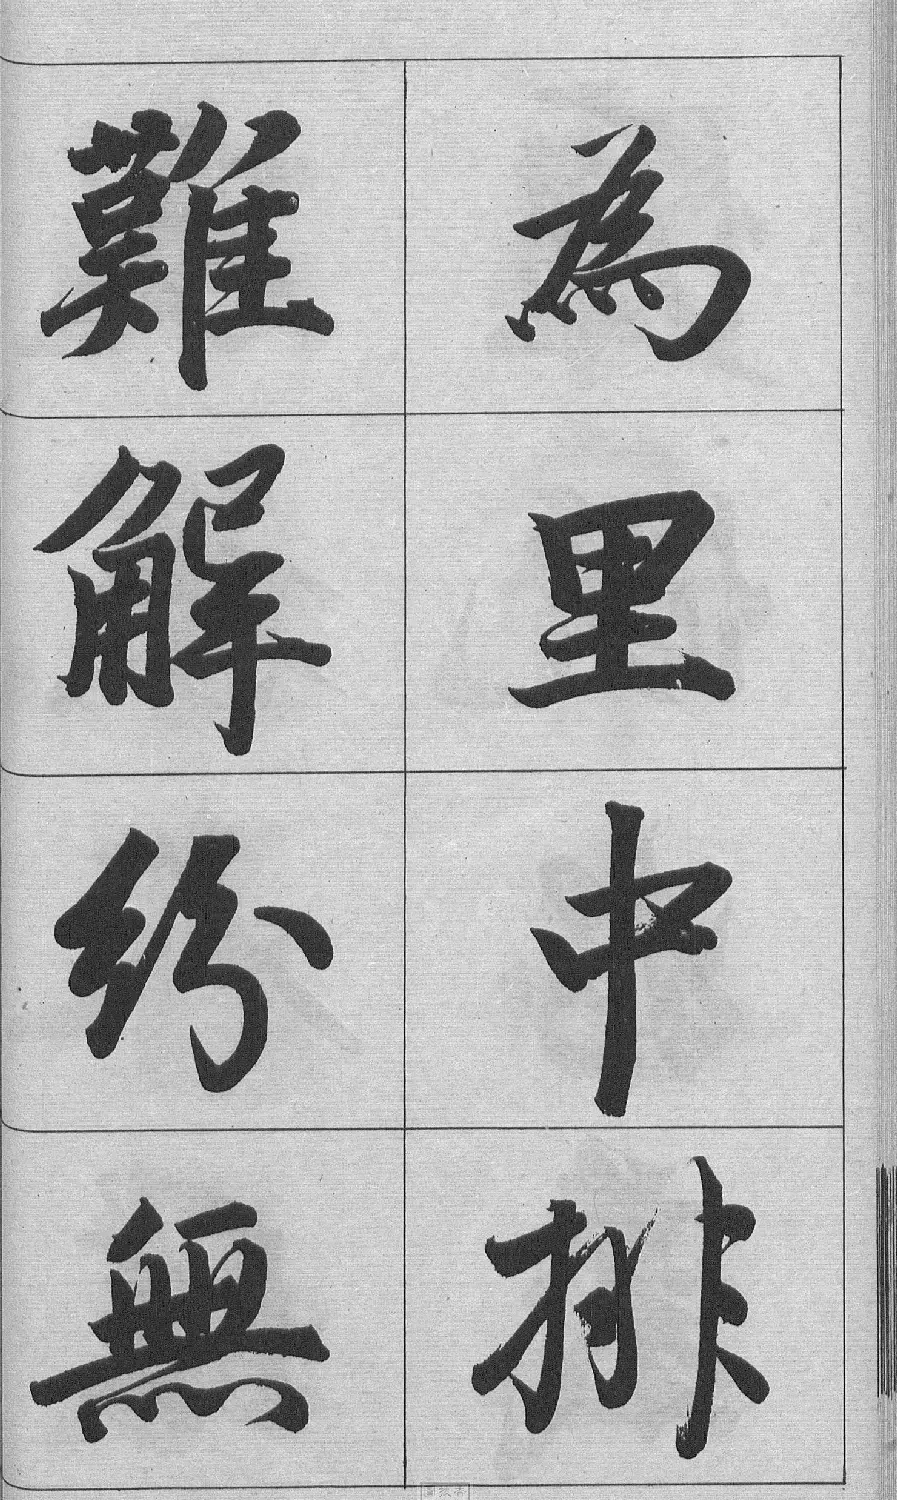 為里中排
難解紛無